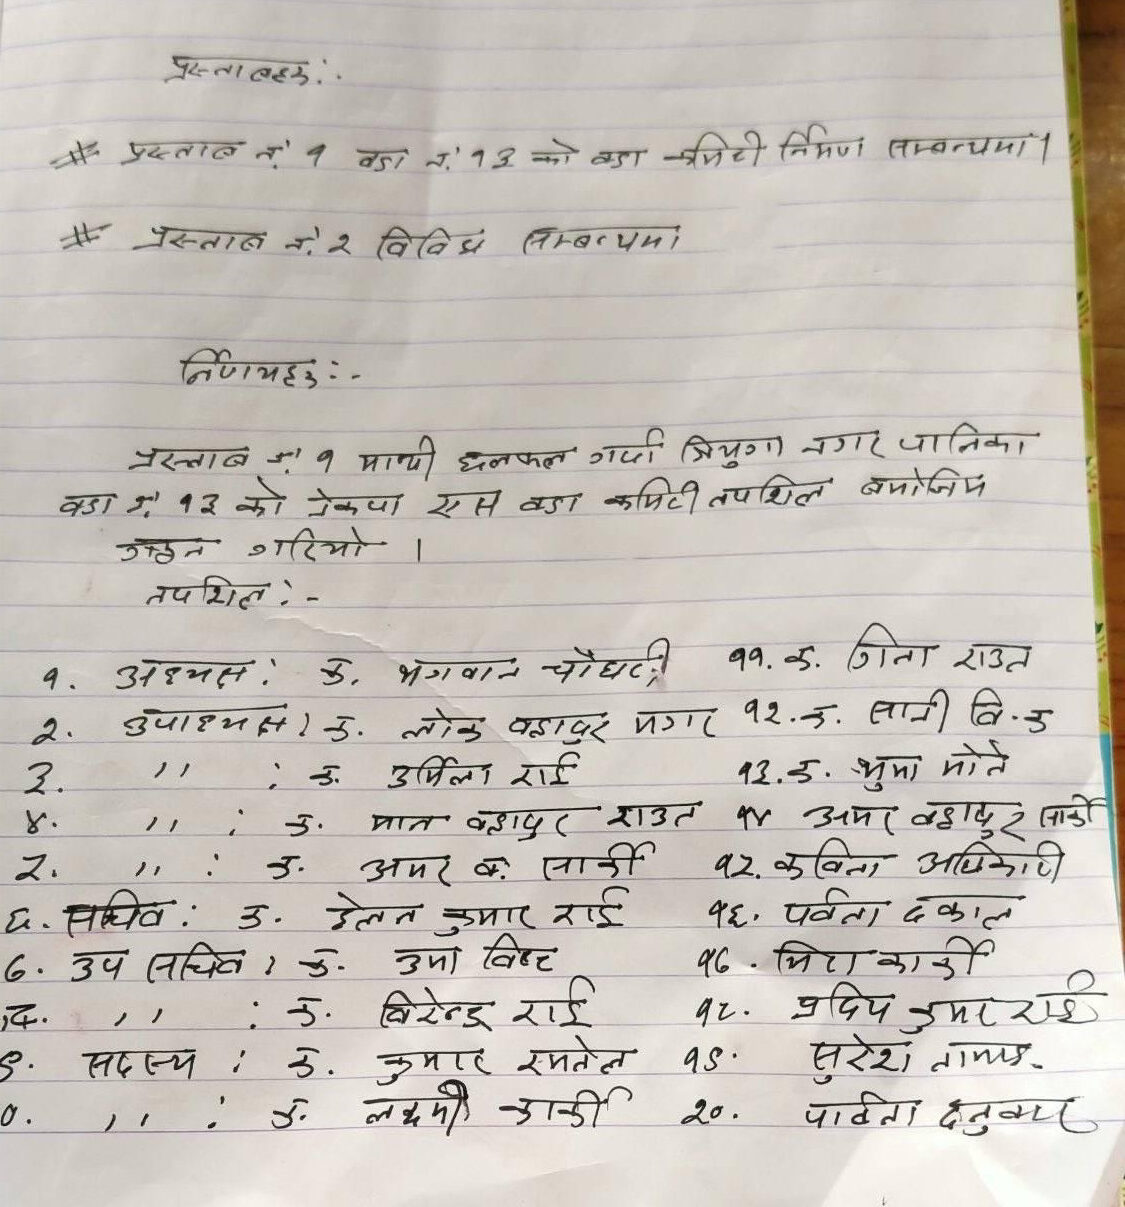 प्रस्तावहरु:-
# प्रस्ताव नं. १ वडा नं. १३ को वडा कमिटी निर्माण सम्बन्धमा।
# प्रस्ताव नं. २ विविध सम्बन्धमा
निर्णयहरु:-
प्रस्ताव नं. १ माथी छलफल गर्दा त्रियुगा नगर पालिका
वडा नं. १३ को नेकपा एस वडा कमिटी तपशिल बमोजिम
गठन गरियो ।
तपशिल:-
१. अध्यक्ष: क. भगवान चौधरी
२. उपाध्यक्ष: क. लोक बहादुर मगर
३. ,, : क. उर्मिला राई
४. ,, : क. मान बहादुर राउत
५. ,, : क. अमर ब. सार्की
६. सचिव: क. डेलन कुमार राई
७. उप सचिव: क. उमा विष्ट
८. ,, : क. विरेन्द्र राई
९. सदस्य : क. कुमार रमतेल
०. ,, : क. लक्ष्मी कार्की
११. क. गिता राउत
१२. क. सानी वि.क
१३. क. भुमा मोते
१४ अमर बहादुर सार्की
१५. कविता अधिकारी
१६. पर्वता ढकाल
१७. मिरा कार्की
१८. प्रदिप कुमार राई
१९. सुरेश तामाङ
२०. पार्वता दनुवार